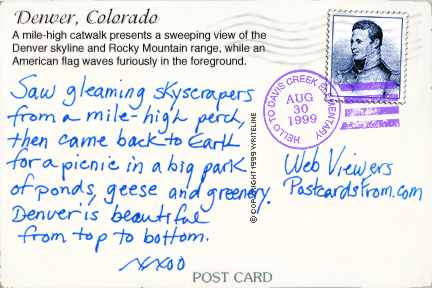 Denver, Colorado
A mile-high catwalk presents a sweeping view of the
Denver skyline and Rocky Mountain range, while an
American flag waves furiously in the foreground.
Saw gleaming skyscrapers
from a mile-high perch,
then came back to Earth
for a picnic in a big park
of ponds, geese and greenery.
Denver is beautiful
from top to bottom.
xxoo
HELLO TO DAVIS CREEK ELEMENTARY
AUG
30
1999
© COPYRIGHT 1999 WRITELINE
Web Viewers
Postcardsfrom.com
POST CARD